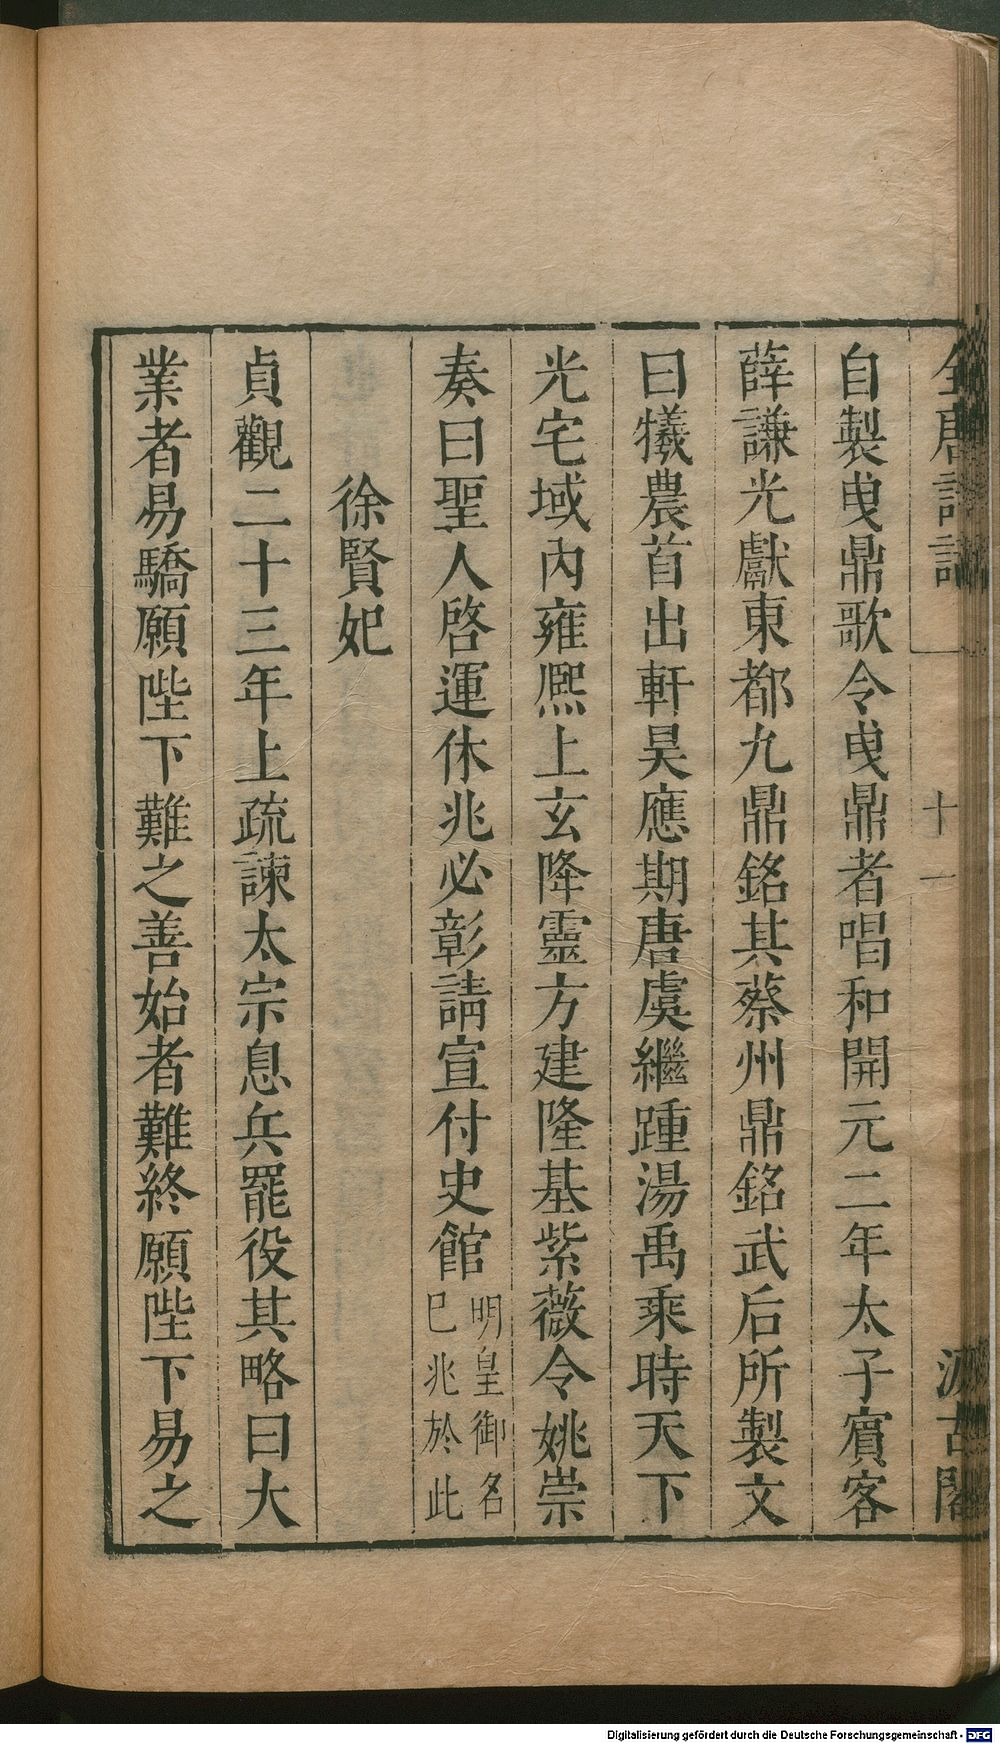 全唐詩話
十一
汲古閣
自製曳鼎歌令曳鼎者唱和開元二年太子賓客
薛謙光獻東都九鼎銘其蔡州鼎銘武后所製文
曰犧農首出軒昊應期唐虞繼踵湯禹乘時天下
光宅域內雍熙上玄降靈方建隆基紫薇令姚崇
奏曰聖人啓運休兆必彰請宣付史館明皇御名
巳兆於此
徐賢妃
貞觀二十三年上疏諫太宗息兵罷役其略曰大
業者易驕願陛下難之善始者難終願陛下易之
Digitalisierung gefördert durch die Deutsche Forschungsgemeinschaft - DFG